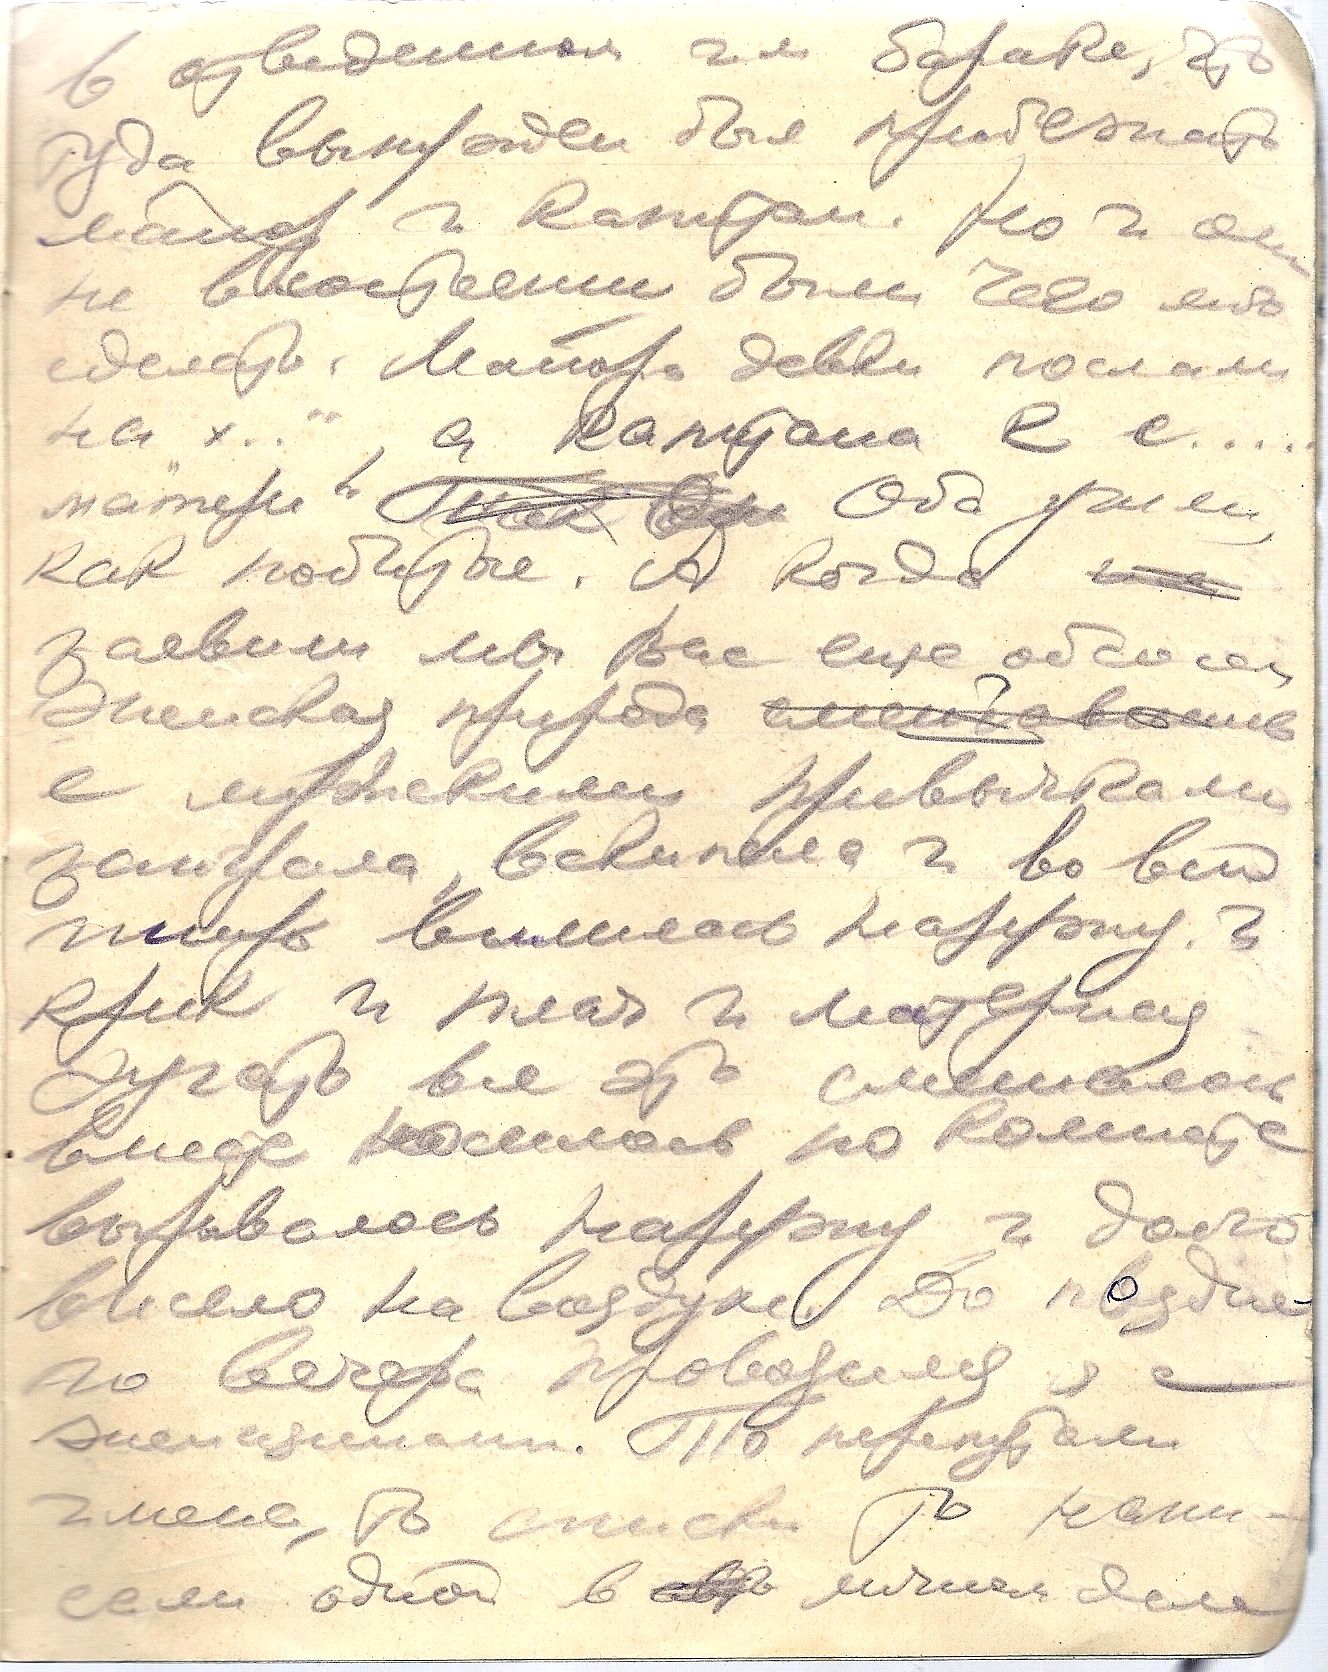 в отведенном им бараке, что
туда вынужден был прибежать
майор и капитан. Но и они
не в состоянии были чего либо
сделать. Майора девки послали
на х..", а капитана к е.....
матери" Оба ушли,
как побитые. А когда
заявили мы вас еще обсосем
Женская природа
с мужскими привычками
заиграла, вскипела и во всю
ширь вылилась наружу. И
крик и плач и матерная
ругать все это смешалось
вместе носилось по комнате
вырывалось наружу и долго
висело на воздухе. До поздне-
го вечера провозился я с
женщинами. То перепутали
имена, то списки то напи-
сали одной в личном деле